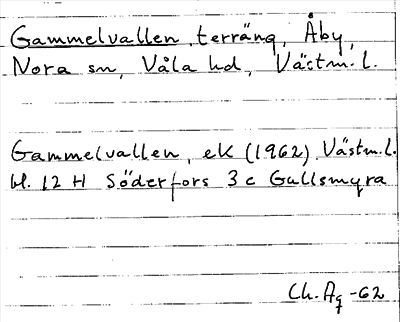 Gammelvallen, terräng, Åby,
Nora sn, Våla hd, Västm. l.
Gammelvallen, ek (1962) Västm. l.
bl. 12 H Söderfors 3 c Gullsmyra
Ch. Ag -62